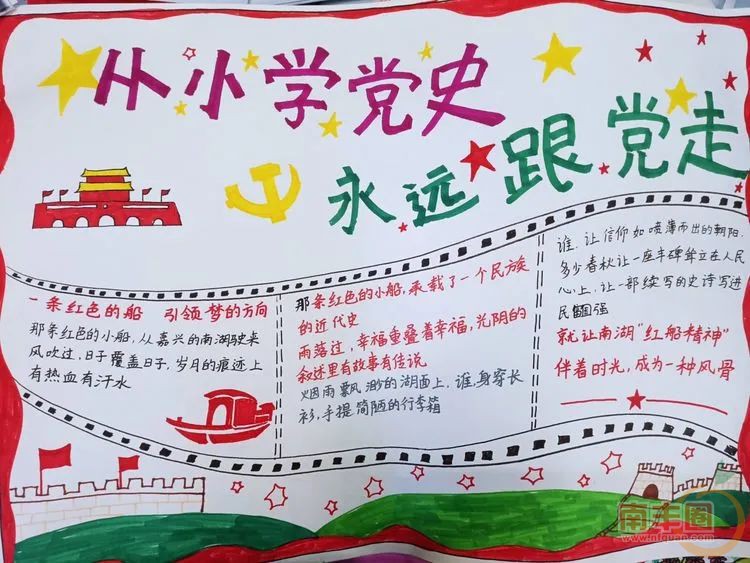 从小学党史
永远跟党走
一条红色的船 引领梦的方向
那条红色的小船,从嘉兴的南湖驶来
风吹过,日子覆盖日子,岁月的痕迹上
有热血有汗水
那条红色的小船,承载了一个民族
的近代史
雨落过,幸福重叠着幸福,光阴的
叙述里有故事有传说
烟雨飘渺的湖面上,谁,身穿长
衫,手提简陋的行李箱
谁,让信仰如喷薄而出的朝阳.
多少春秋让一座丰碑耸立在人民
心上,让一部续写的史诗写进
民
强
就让南湖"红船精神"
伴着时光,成为一种风骨
南丰圈